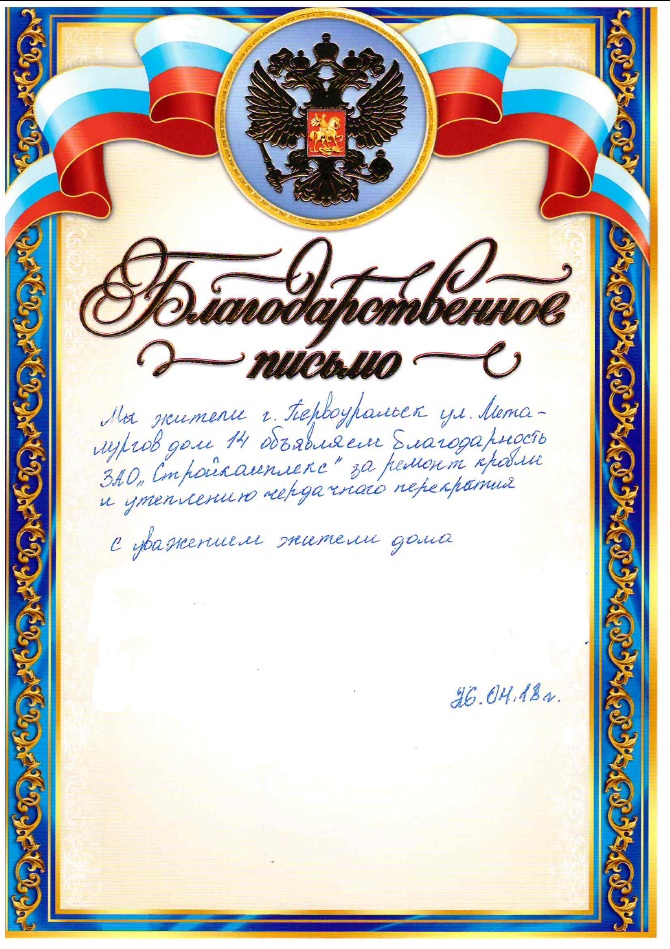 Благодарственное
письмо
Мы жители г. Первоуральск ул. Мета-
лургов дом 14 объявляем благодарность
ЗАО „Стройкомплекс" за ремонт кровли
и утеплению чердачного перекрытия
с уважением жители дома
26.04.18 г.